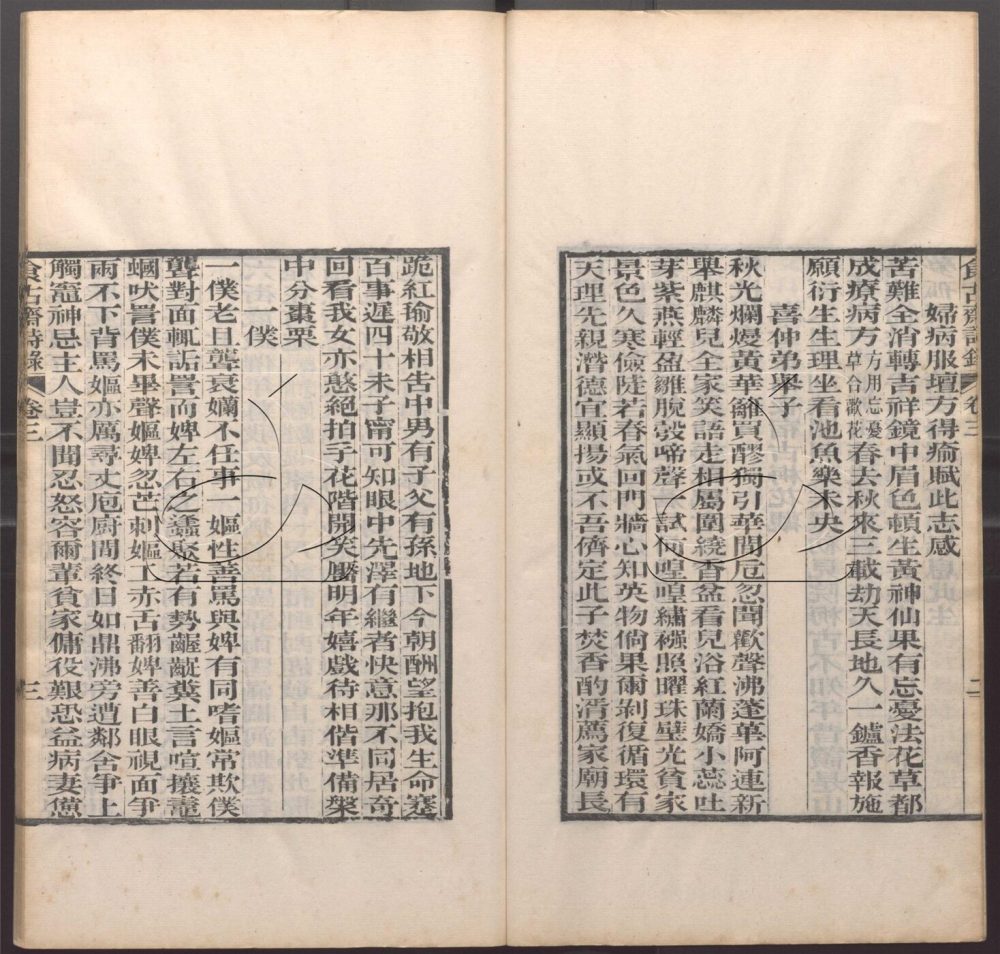 食古齋詩錄 卷三 二
婦病服壇方得痊賦此志感
苦難全消轉吉祥鏡中眉色頓生黃神仙果有忘憂法花草都
成療病方方用忘憂草合歡花春去秋來三載劫天長地久一鑪香報施
願衍生生理坐看池魚樂未央
喜仲弟舉子
秋光爛熳黃華籬買醪獨引華間卮忽聞歡聲沸蓬蓽阿連新
舉麒麟兒全家笑語走相屬圍繞香盆看兒浴紅蘭嬌小蕊吐
芽紫燕輕盈雛脫殼啼聲一試何喤喤繡襁照曜珠璧光貧家
景色久寒儉陡若春氣回門牆心知英物倘果爾剝復循環有
天理先親潛德宜顯揚或不吾儕定此子焚香酌湑薦家廟長
跪紅瑜敬相告中男有子父有孫地下今朝酬望抱我生命蹇
百事遲四十未子甯可知眼中先澤有繼者快意那不同居奇
回看我女亦憨絕拍手花階開笑靨明年嬉戲待相偕準備槃
中分棗栗
一僕
一僕老且聾衰孏不任事一嫗性善罵與婢有同嗜嫗常欺僕
聾對面輒詬詈而婢左右之蠭聚若有勢齷齪糞土言喧攘鼃
蟈吠詈僕未畢聲嫗婢忽芒刺嫗工赤舌翻婢善白眼視面爭
兩不下背罵嫗亦厲尋丈庖廚間終日如鼎沸旁遭鄰舍爭上
觸竈神忌主人豈不聞忍怒容爾輩貧家傭役艱恐益病妻憊
食古齋詩錄 卷三 三